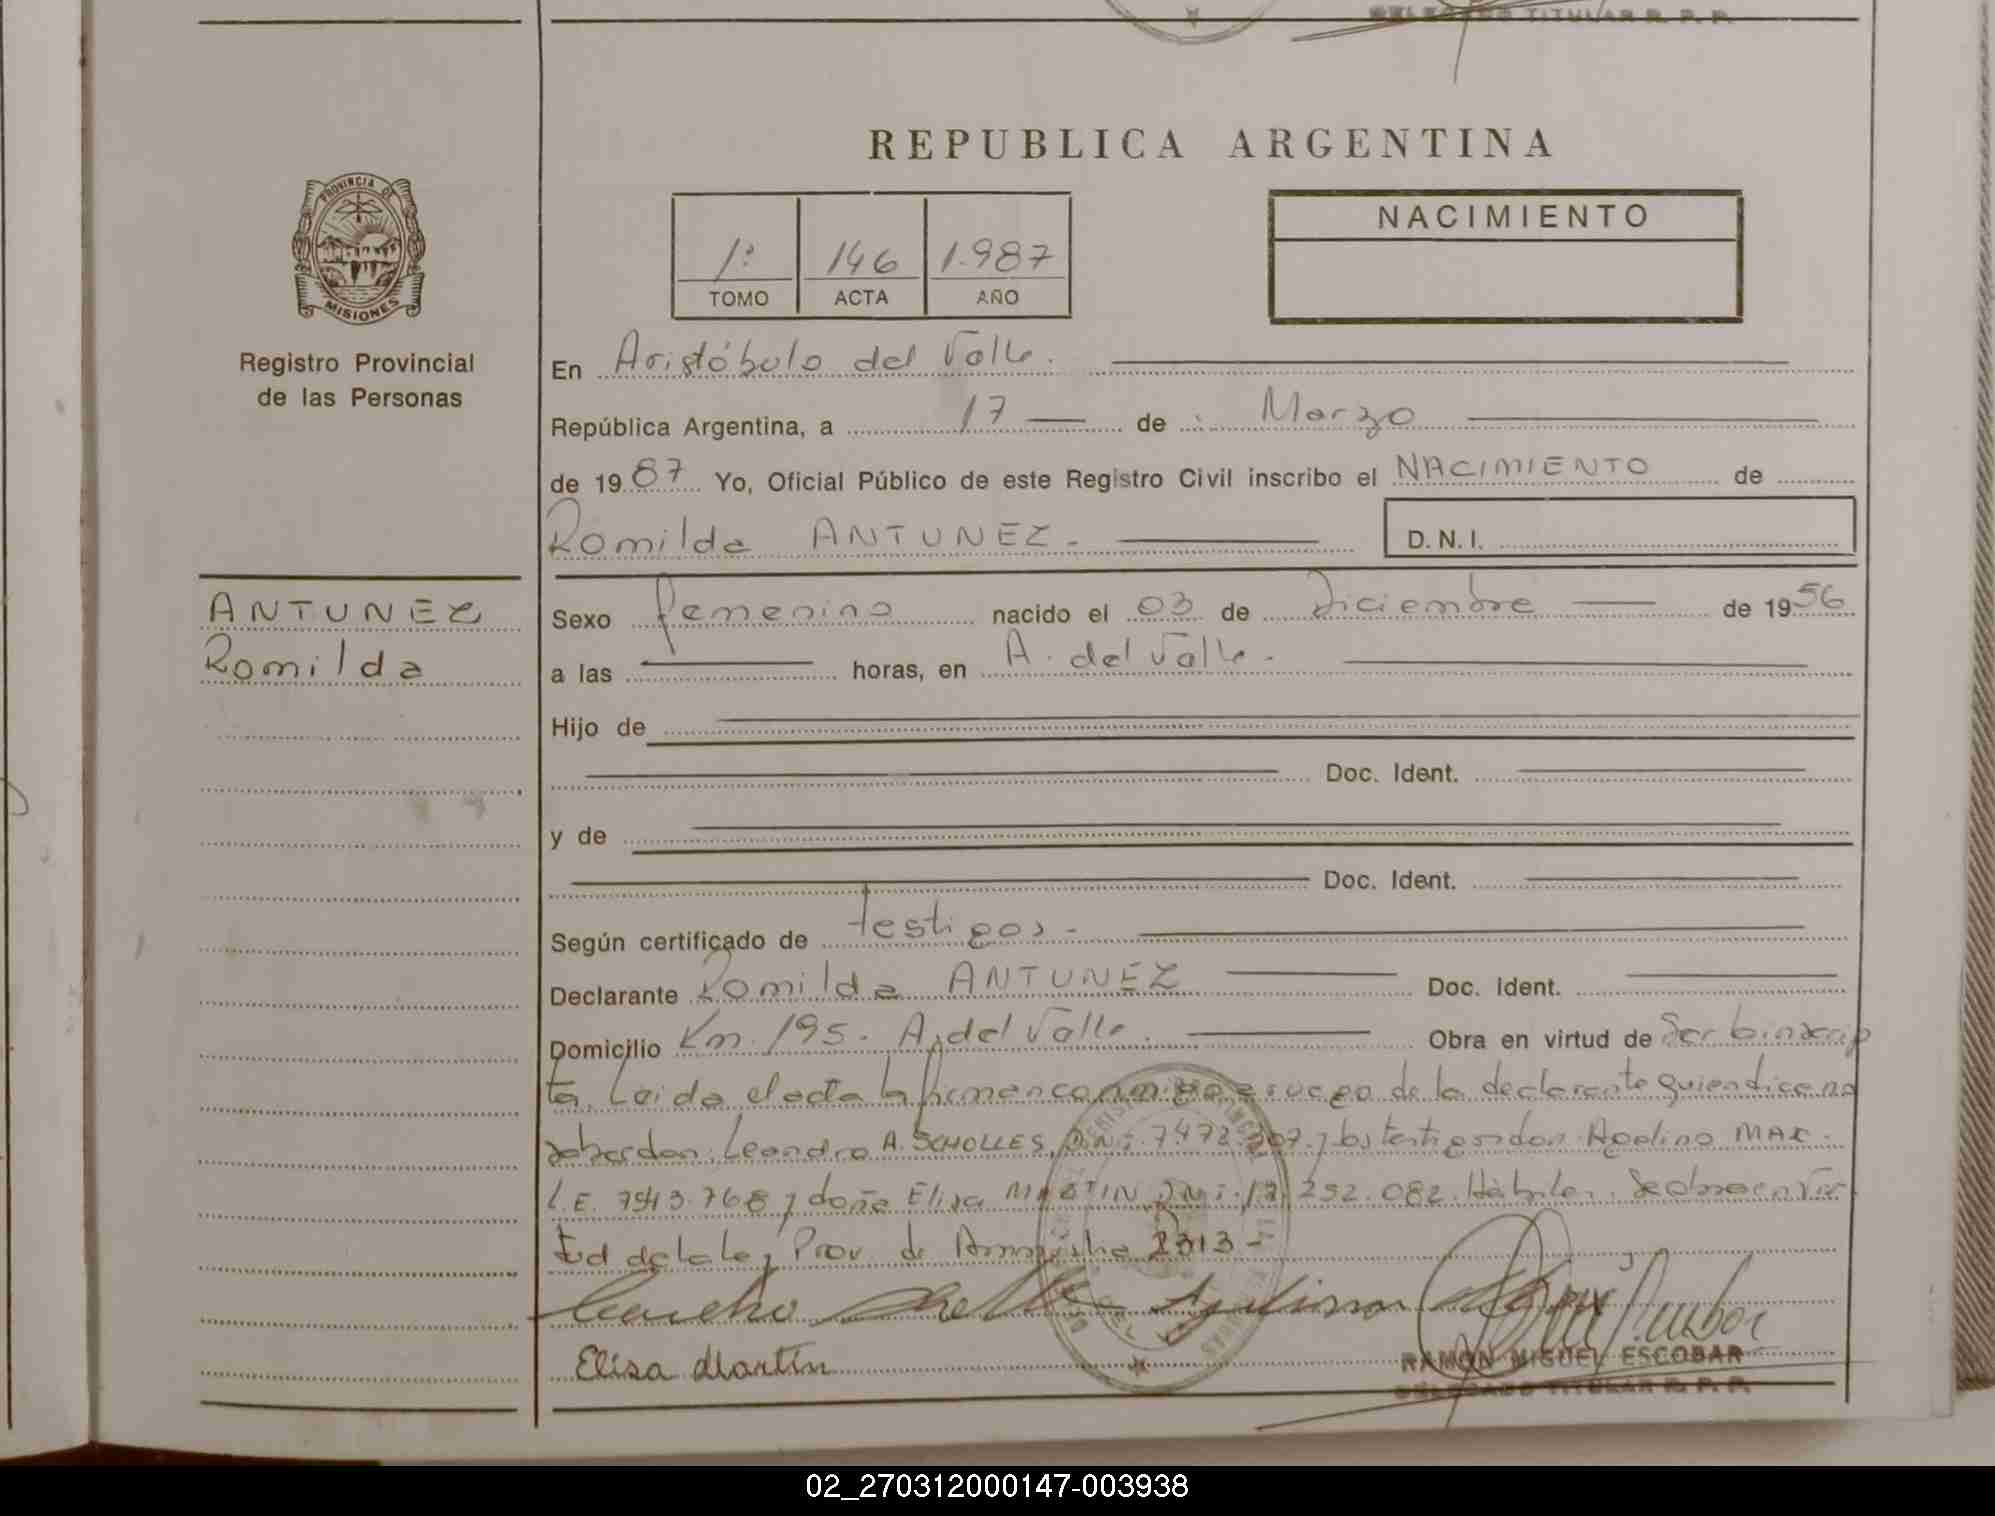 DELEGADO TITULAR R. P. P.
REPUBLICA ARGENTINA
PROVINCIA DE
MISIONES
Registro Provincial
de las Personas
1º 146 1.987
TOMO ACTA AÑO
NACIMIENTO
En Aristóbulo del Valle.
República Argentina, a 17 de Marzo
de 1987 Yo, Oficial Público de este Registro Civil inscribo el NACIMIENTO de
Romilda ANTUNEZ.- D.N.I.
ANTUNEZ
Romilda
Sexo femenino nacido el 03 de Diciembre de 1956
a las horas, en A. del Valle.-
Hijo de
Doc. Ident.
y de
Doc. Ident.
Según certificado de testigos.-
Declarante Romilda ANTUNEZ Doc. Ident.
Domicilio Km. 195. A. del Valle. Obra en virtud de Ser
ta. Leida el acta la firman conmigo a ruego de la declarante quien dice no
saber don: Leandro A. SCHOLLES, DNI: 7.472.207. y los testigos don Apelino MAX.
L.E. 7543.768 y doña Elisa MARTIN DNI: 252.082. Hábiles. Se obra en vir
tud de la Ley Prov. de Amnistía 2313-
Elisa Martin
RAMON MIGUEL ESCOBAR
DELEGADO TITULAR R. P. P.
02_270312000147-003938